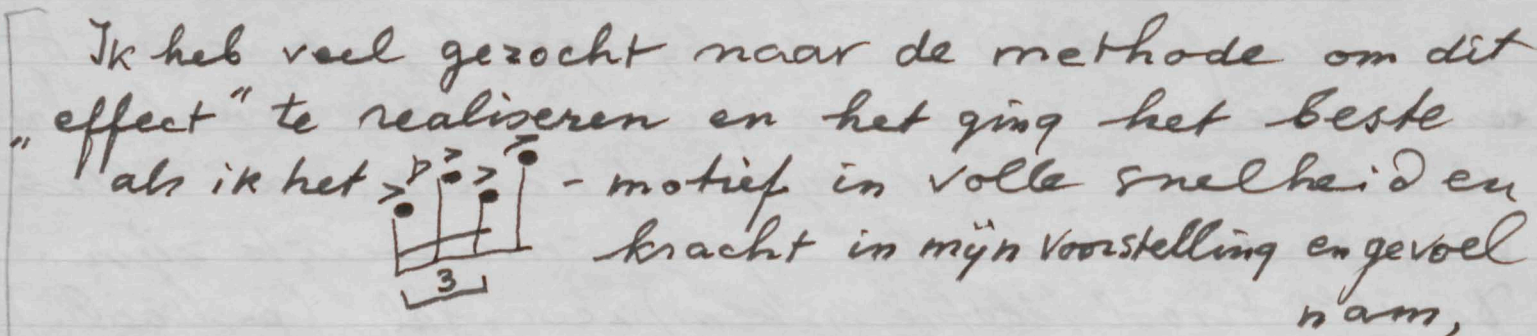 Ik heb veel gezocht naar de methode om dit
„effect" te realiseren en het ging het beste
als ik het - motief in volle snelheid en
3
kracht in mijn voorstelling en gevoel
nam,